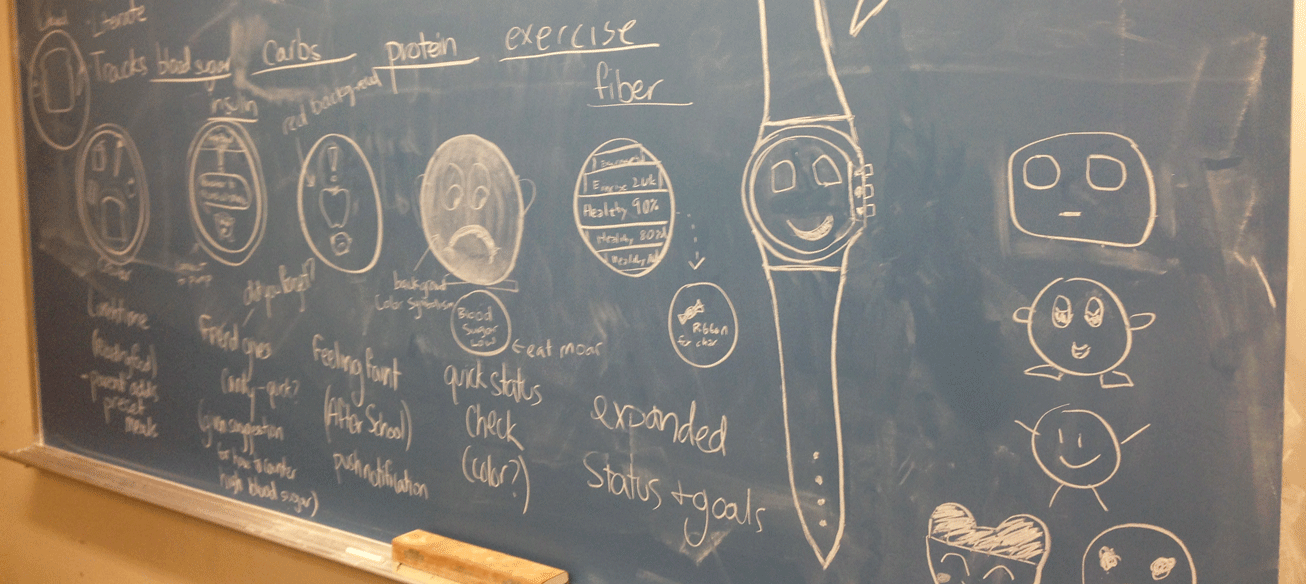 iterate
Tracks blood sugar carbs protein exercise
insulin
fiber
red background
!
!
!
Exercise 20%
Healthy 90%
Healthy 80%
Healthy
background
Color symbolism
Blood
Sugar
Low
←eat moar
Ribbon
for char
did you forget?
Lunchtime
- parent adds
preset
meals
Friend gives
candy - quick?
(given suggestion
for how to counter
high blood sugar)
Feeling faint
(After School)
push notification
quick status
check
(color?)
expanded
Status + goals